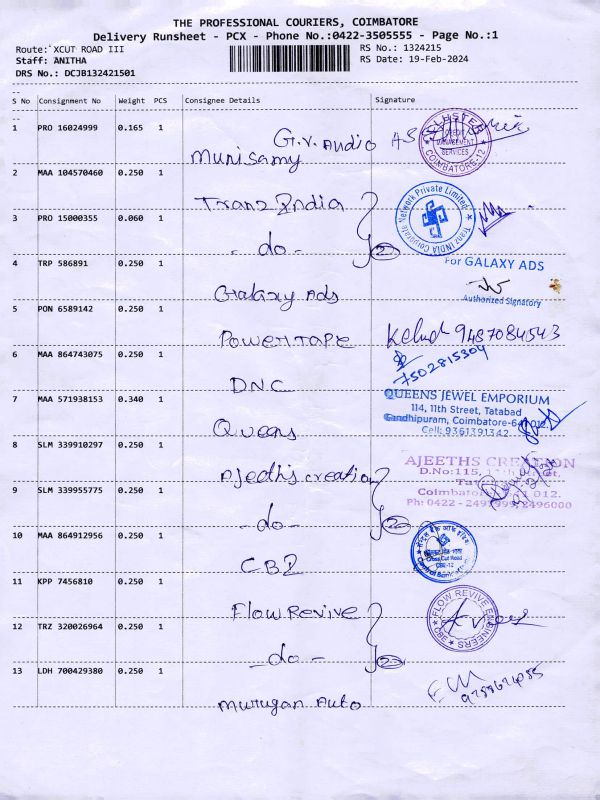 THE PROFESSIONAL COURIERS, COIMBATORE
Delivery Runsheet - PCX - Phone No.:0422-3505555 - Page No.:1
Route: XCUT ROAD III
RS No.: 1324215
Staff: ANITHA
RS Date: 19-Feb-2024
DRS No.: DCJB132421501
S No Consignment No Weight PCS Consignee Details Signature
1 PRO 16024999 0.165 1 G.V. Audio
Munisamy
CREDIT MANAGEMENT SERVICES
COIMBATORE-12
2 MAA 104570460 0.250 1 Tranz India
Tranz INDIA Corporate Network Private Limited
3 PRO 15000355 0.060 1 - do - 2
For GALAXY ADS
4 TRP 586891 0.250 1 Galaxy Ads
Authorized Signatory
5 PON 6589142 0.250 1 Powertape 9487084543
6 MAA 864743075 0.250 1 DNC 7502815304
7 MAA 571938153 0.340 1 Queens
QUEENS JEWEL EMPORIUM
114, 11th Street, Tatabad
Gandhipuram, Coimbatore-641 012.
Cell: 9361391342
8 SLM 339910297 0.250 1 Ajeeth's creation
AJEETHS CREATION
D.No:115,
9 SLM 339955775 0.250 1 - do - 2
Ph: 0422 -
10 MAA 864912956 0.250 1 CBI
Cross Cut Road
CBE-12
11 KPP 7456810 0.250 1 Flow Revive
FLOW REVIVE ENGINEERS
CBE
12 TRZ 320026964 0.250 1 - do - 2
13 LDH 700429380 0.250 1 Murugan Auto